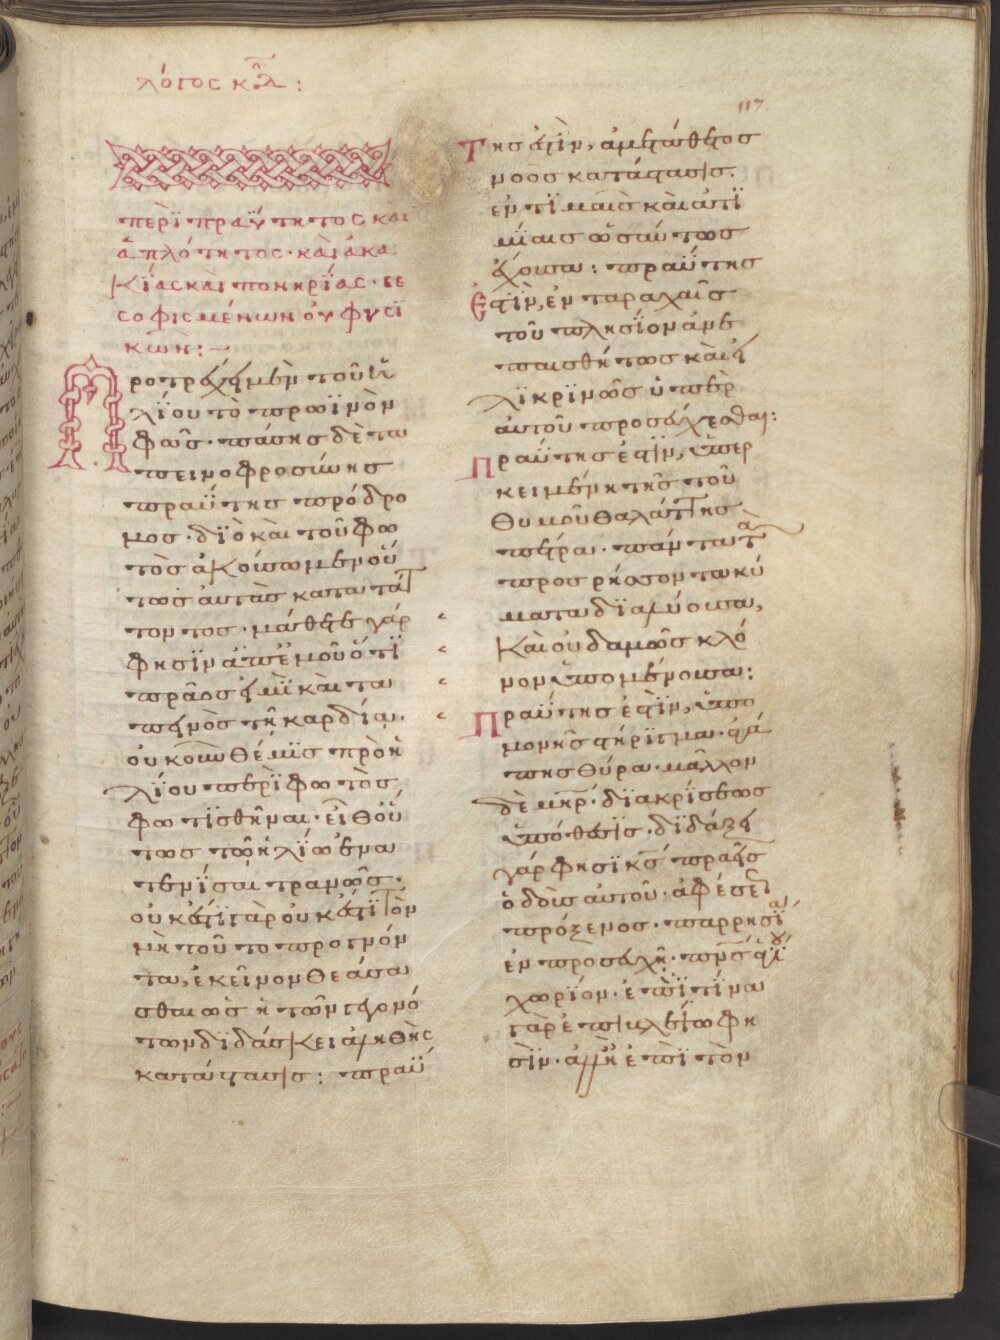 λόγος κδ:
117
περὶ πραΰτητος καὶ
ἁπλότητος· καὶ ἀκα
κίας καὶ πονηρίας· σε
σοφισμένων οὐ φυσι
κῶν:
Προτρέχει μὲν τοῦ ἡ
λίου τὸ πρωϊνὸν
φῶς· πάσης δὲ τα
πεινοφροσύνης
πραΰτης πρόδρο
μος· διὸ καὶ τοῦ φω
τὸς ἀκούσωμεν οὕ
τως αὐτὰς κατατάτ
τοντος· μάθετε γάρ
φησιν ἀπ' ἐμοῦ ὅτι
πρᾶος εἰμὶ καὶ τα
πεινὸς τῇ καρδίᾳ·
οὐκοῦν θέμις πρὸ ἡ
λίου περὶ φωτὸς
φωτισθῆναι· εἶθ' οὕ
τως τῷ ἡλίῳ ἐνα
τενίσαι τρανῶς·
οὐκ ἔστι γὰρ οὐκ ἔστι τὸν
μὴ τοῦτο προγνόν
τα, ἐκεῖνον θεάσα
σθαι ὡς ἡ τῶν γεγονό
των διδάσκει ἀληθὴς
κατάστασις: πραΰ
Της ἐστὶν, ἀμετάθετος
νοὸς κατάστασις·
ἐν τιμαῖς καὶ ἀτι
μίαις ὡσαύτως
ἔχουσα: πραΰτης
Ἐστὶν, ἐν ταραχαῖς
τοῦ πλησίον ἀνε
παισθήτως καὶ εἰ
λικρινῶς ὑπὲρ
αὐτοῦ προσεύχεσθαι:
Πραΰτης ἐστὶν, ὑπερ
κειμένη τῆς τοῦ
θυμοῦ θαλάττης
πέτρα· πάντα τὰ
προσρήσσοντα κύ
ματα διαλύουσα,
Καὶ οὐδαμῶς κλό
νον ὑπομένουσα:
Πραΰτης ἐστὶν, ὑπο
μονῆς στήριγμα· ἀγά
πης θύρα· μᾶλλον
δὲ μηρ· διακρίσεως
ὑπόθεσις· διδάξει
γάρ φησι κς πραεῖς
ὁδοὺς αὐτοῦ· ἀφέσεως
πρόξενος· παρρησία
ἐν προσευχῇ· πνς ἁγίου
χωρίον· ἐπὶ τίνα
γὰρ ἐπιβλέψω φη
σὶν· ἀλλ' ἢ ἐπὶ τὸν